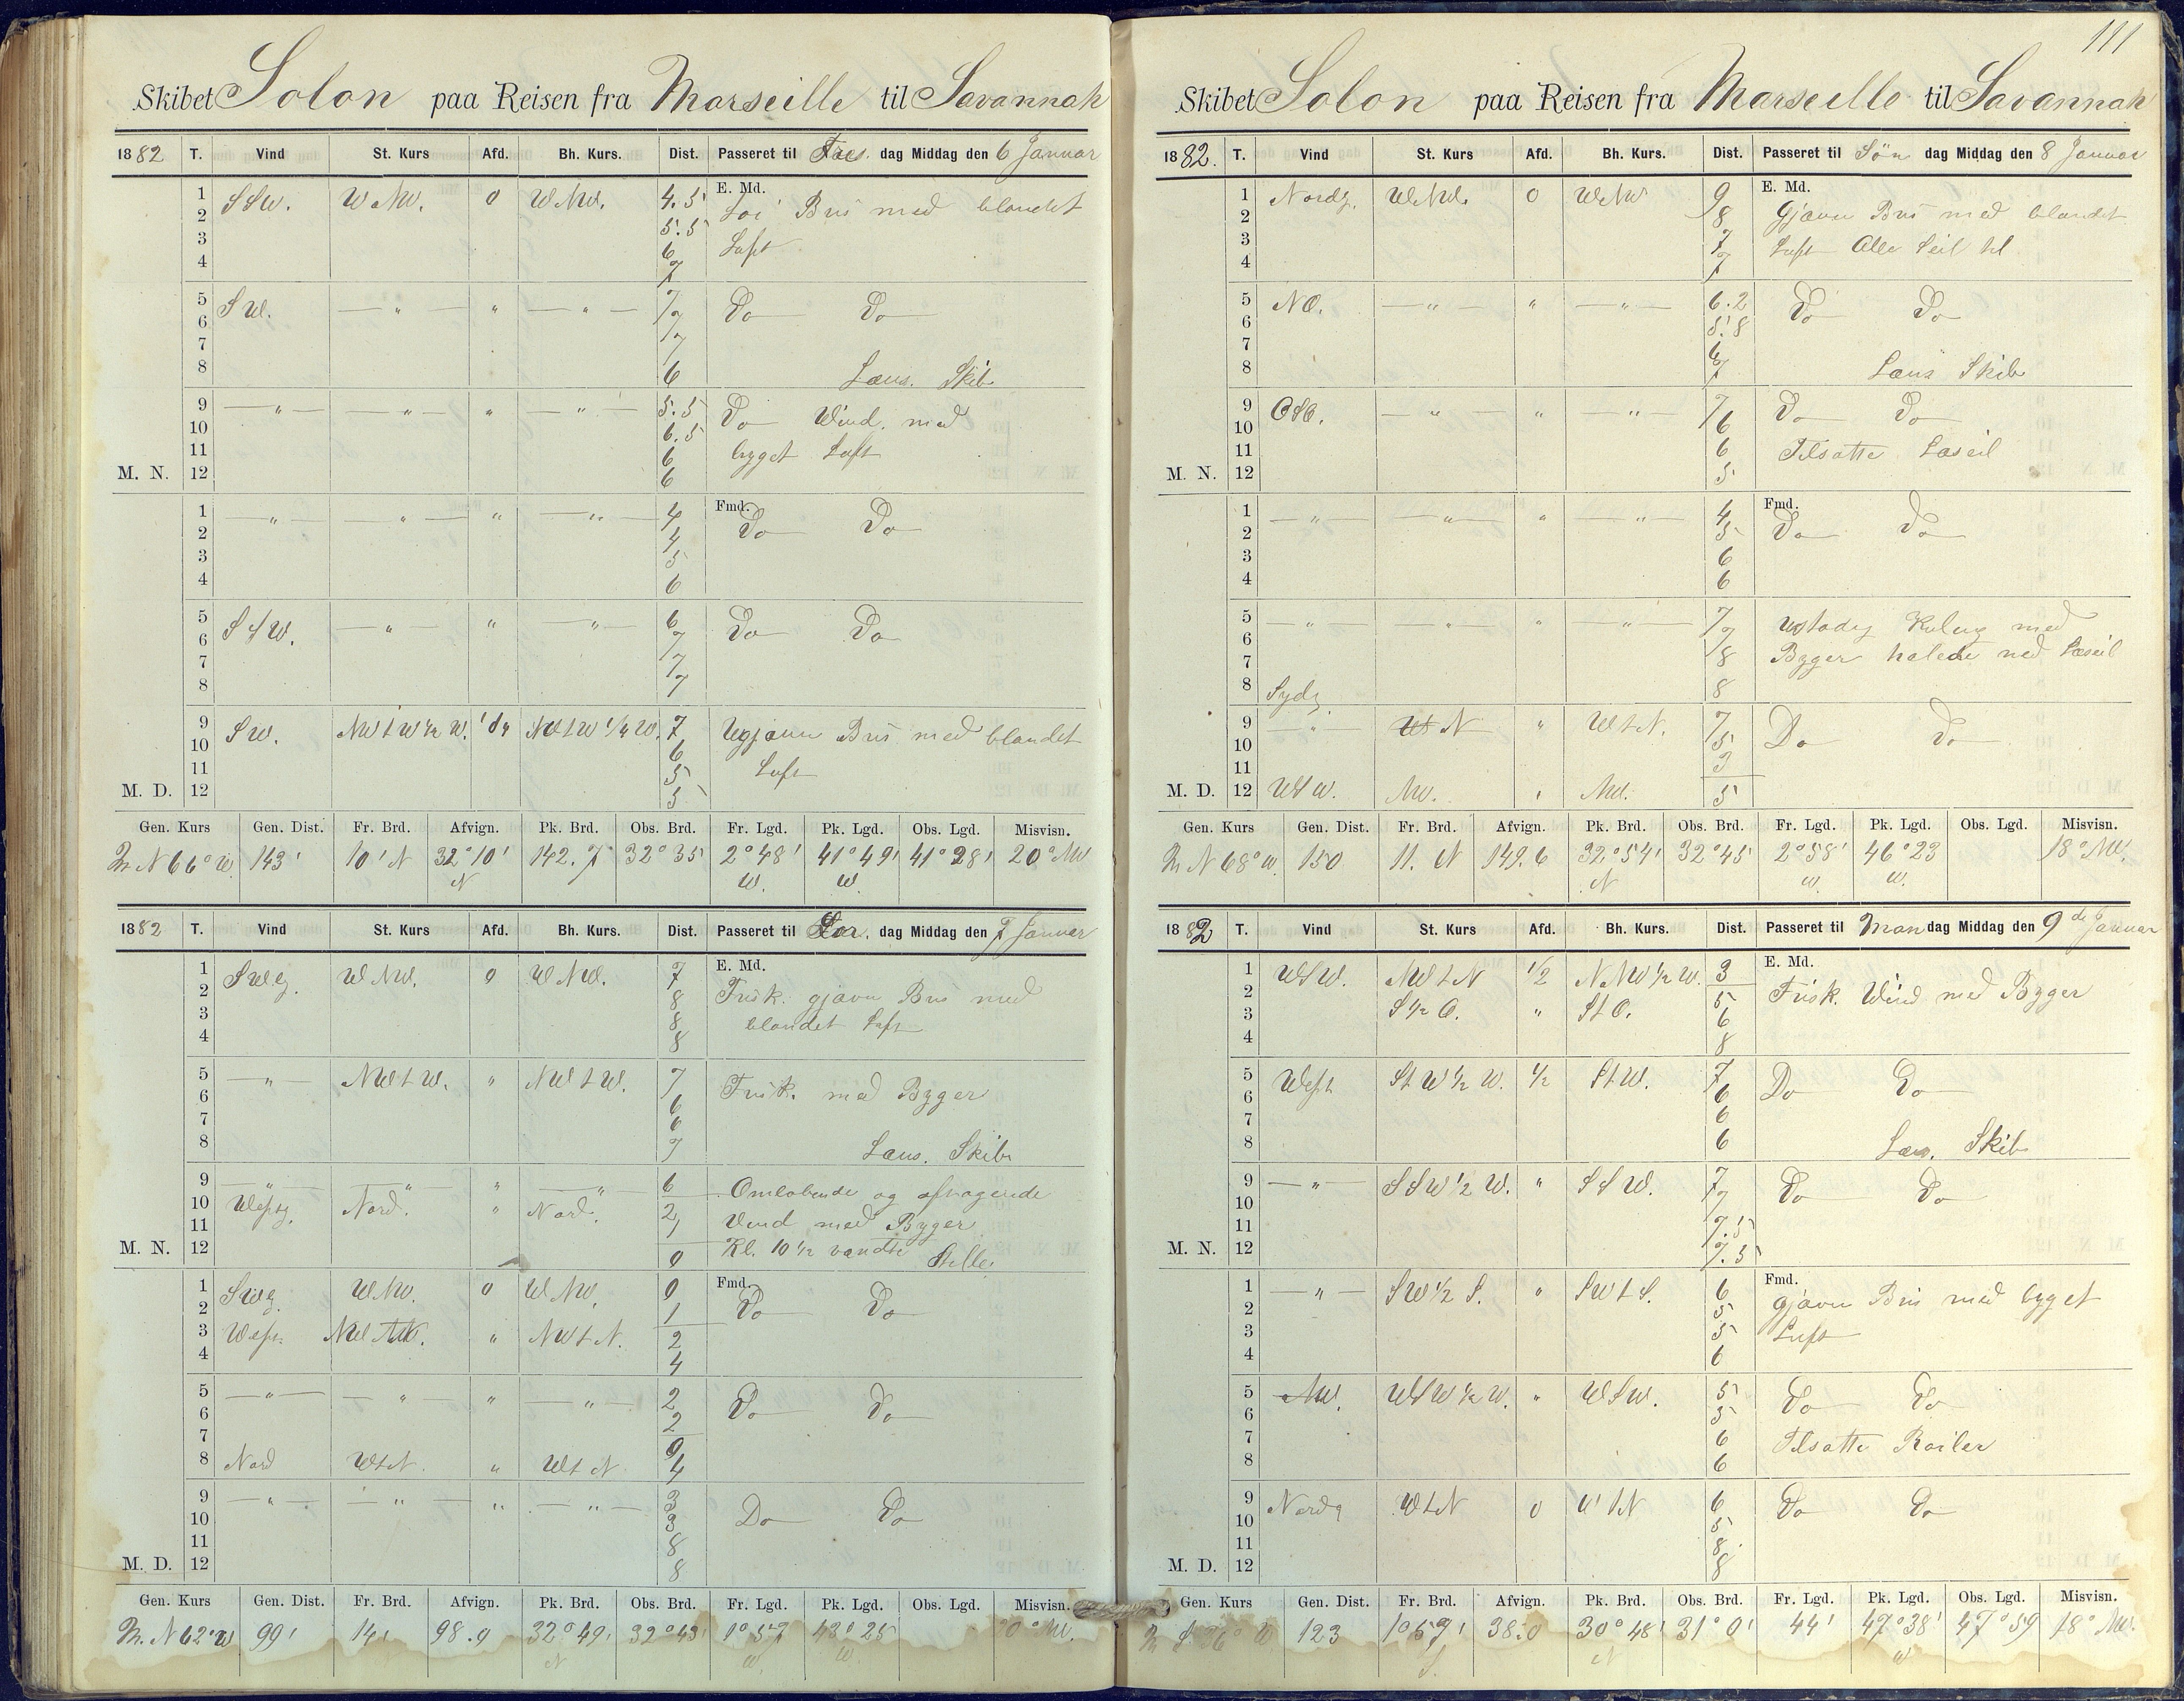 111
Skibet Solon paa Reisen fra Marseille til Savannah
1882 T. Vind St. Kurs Afd. Bh. Kurs. Dist. Passeret til Fre dag Middag den 6 Januar
1 SSW. WNW. 0 WNW. 4.5 E. Md.
2 5.5 Bris med blandet
3 6 Luft
4 7
5 SW. — " — " — " — 7 Do Do
6 7
7 7
8 6 Læns. Skib
9 — " — — " — " — " — 5.5 Do Wind. med
10 6.5
11 6 byget Luft
M. N. 12 6
1 — " — — " — " — " — 4 Fmd. Do Do
2 4
3 5
4 6
5 SSW. — " — " — " — 6 Do Do
6 7
7 7
8 7
9 SW. NWtW½W. NWtW¼W. 7 Ugjævn Bris med blandet
10 6
11 5 Luft
M. D. 12 5
Gen. Kurs Gen. Dist. Fr. Brd. Afvign. Pk. Brd. Obs. Brd. Fr. Lgd. Pk. Lgd. Obs. Lgd. Misvisn.
N 66° W. 143' 10' N 32°10' N 142.7 32°35 2°48' W. 41°49' W. 41°28' 20° NW
1882 T. Vind St. Kurs Afd. Bh. Kurs. Dist. Passeret til Lör. dag Middag den 7 Januar
1 SWlg. WNW. 0 WNW. 7 E. Md.
2 8 Frisk. gjævn Bris med
3 8 blandet Luft
4 8
5 — " — NWtW. " NWtW. 7 Frisk. med Byger
6 6
7 6
8 7 Læns. Skib
9 — " — — " — " — " — 6 Omløbende og aftagende
10 Westlg. Nord. " Nord. 2
11 1 Vind med Byger
M. N. 12 0 Kl. 10½ vandte Stille
1 SWlg. WNW. 0 WNW. 0 Fmd. Do Do
2 1
3 West. NW " NWtN. 2
4 4
5 — " — — " — " — " — 2 Do Do
6 2
7 9
8 Nord WtN. " WtN 4
9 — " — — " — " — " — 3 Do Do
10 3
11 8
M. D. 12 8
Gen. Kurs Gen. Dist. Fr. Brd. Afvign. Pk. Brd. Obs. Brd. Fr. Lgd. Pk. Lgd. Obs. Lgd. Misvisn.
N 62° W 99' 14' 98.9 32°49' N 32°43' 1°57 W. 43°25 W. 20° NW.
Skibet Solon paa Reisen fra Marseille til Savannah
1882. T. Vind St. Kurs Afd. Bh. Kurs. Dist. Passeret til Søn dag Middag den 8 Januar
1 Nordlg. WNW. 0 WNW 9 E. Md.
2 8 Gjævn Bris med blandet
3 7 Luft Alle Seil til
4 7
5 NO. — " — " — " — 6.2 Do Do
6 5.8
7 6
8 7 Læns Skib
9 OSO. — " — " — " — 7 Do Do
10 6
11 6 Tilsatte Læseil
M. N. 12 5
1 — " — — " — " — " — 4 Fmd. Do Do
2 5
3 6
4 6
5 — " — — " — " — " — 7 Ustadig Kuling med
6 7
7 8 Byger halede ned Læseil
8 Sydlg. 8
9 — " — Wt N " WtN. 7 Do Do
10 5
11 3
M. D. 12 WSW. NW. NW. 5
Gen. Kurs Gen. Dist. Fr. Brd. Afvign. Pk. Brd. Obs. Brd. Fr. Lgd. Pk. Lgd. Obs. Lgd. Misvisn.
N 68° W. 150 11. N 149.6 32°54' N 32°45 2°58' W. 46°23 W. 18° NW.
1882 T. Vind St. Kurs Afd. Bh. Kurs. Dist. Passeret til Man dag Middag den 9de Januar
1 WSW. NWtN ½ NNW½W. 3 E. Md.
2 5 Frisk. Wind med Byger
3 S½O. " StO. 6
4 8
5 West StW½W. ½ StW. 7 Do Do
6 6
7 6
8 6 Læns. Skib
9 — " — SSW½W. " SSW. 7 Do Do
10 7
11 7.5
M. N. 12 7.5
1 — " — SW½S. " SWtS. 6 Fmd.
2 5 gjævn Bris med byget
3 5 Luft
4 6
5 NW. WSW½W. " WSW. 5 Do Do
6 5
7 6 Tilsatte Roiler
8 6
9 Nordlg WtN 0 WtN 6 Do Do
10 5
11 8
M. D. 12 8
Gen. Kurs Gen. Dist. Fr. Brd. Afvign. Pk. Brd. Obs. Brd. Fr. Lgd. Pk. Lgd. Obs. Lgd. Misvisn.
S W 123 1°57' S. 38.0 30°48' N 31°0' 44' 47°38' W 47°59 18° NW.